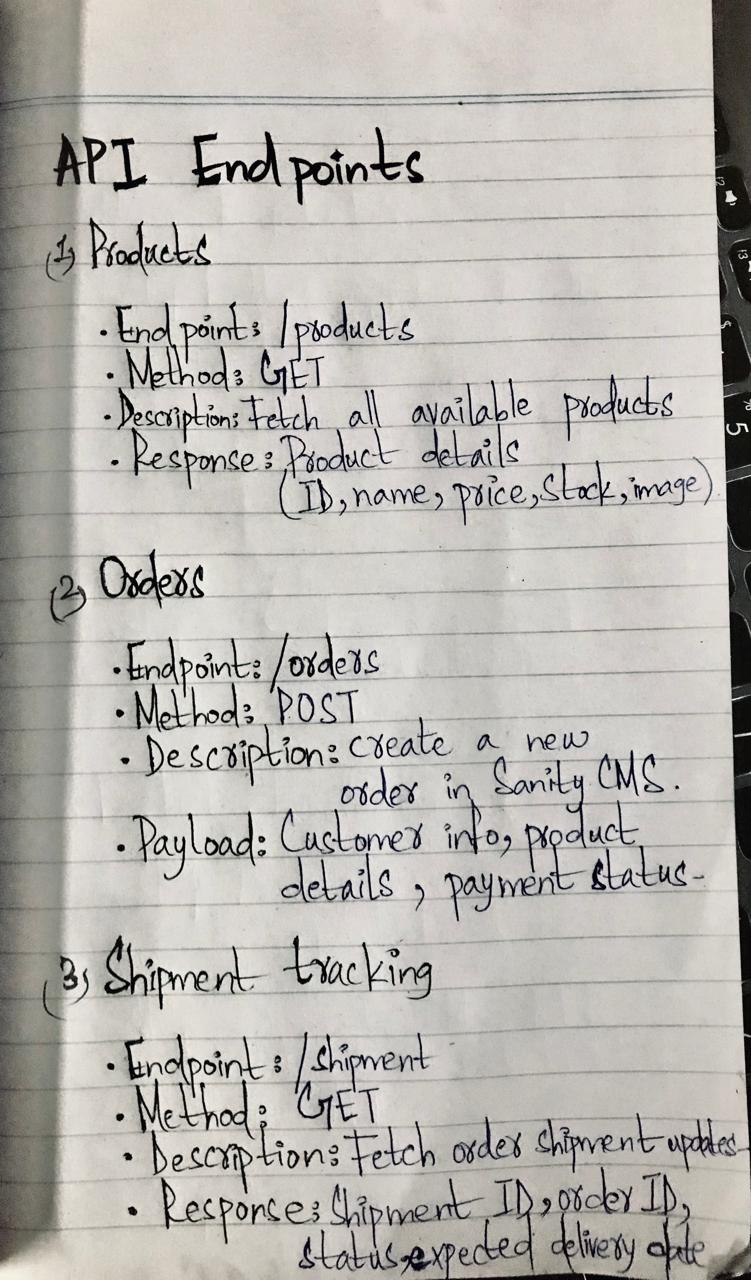 API Endpoints
(1) Products
• Endpoint: /products
• Method: GET
• Description: Fetch all available products
• Response: Product details
(ID, name, price, Stock, image)
(2) Orders
• Endpoint: /orders
• Method: POST
• Description: create a new
order in Sanity CMS.
• Payload: Customer info, product
details, payment status-
(3) Shipment tracking
• Endpoint: /shipment
• Method: GET
• Description: Fetch order shipment updates
• Response: Shipment ID, order ID,
status, expected delivery date
5